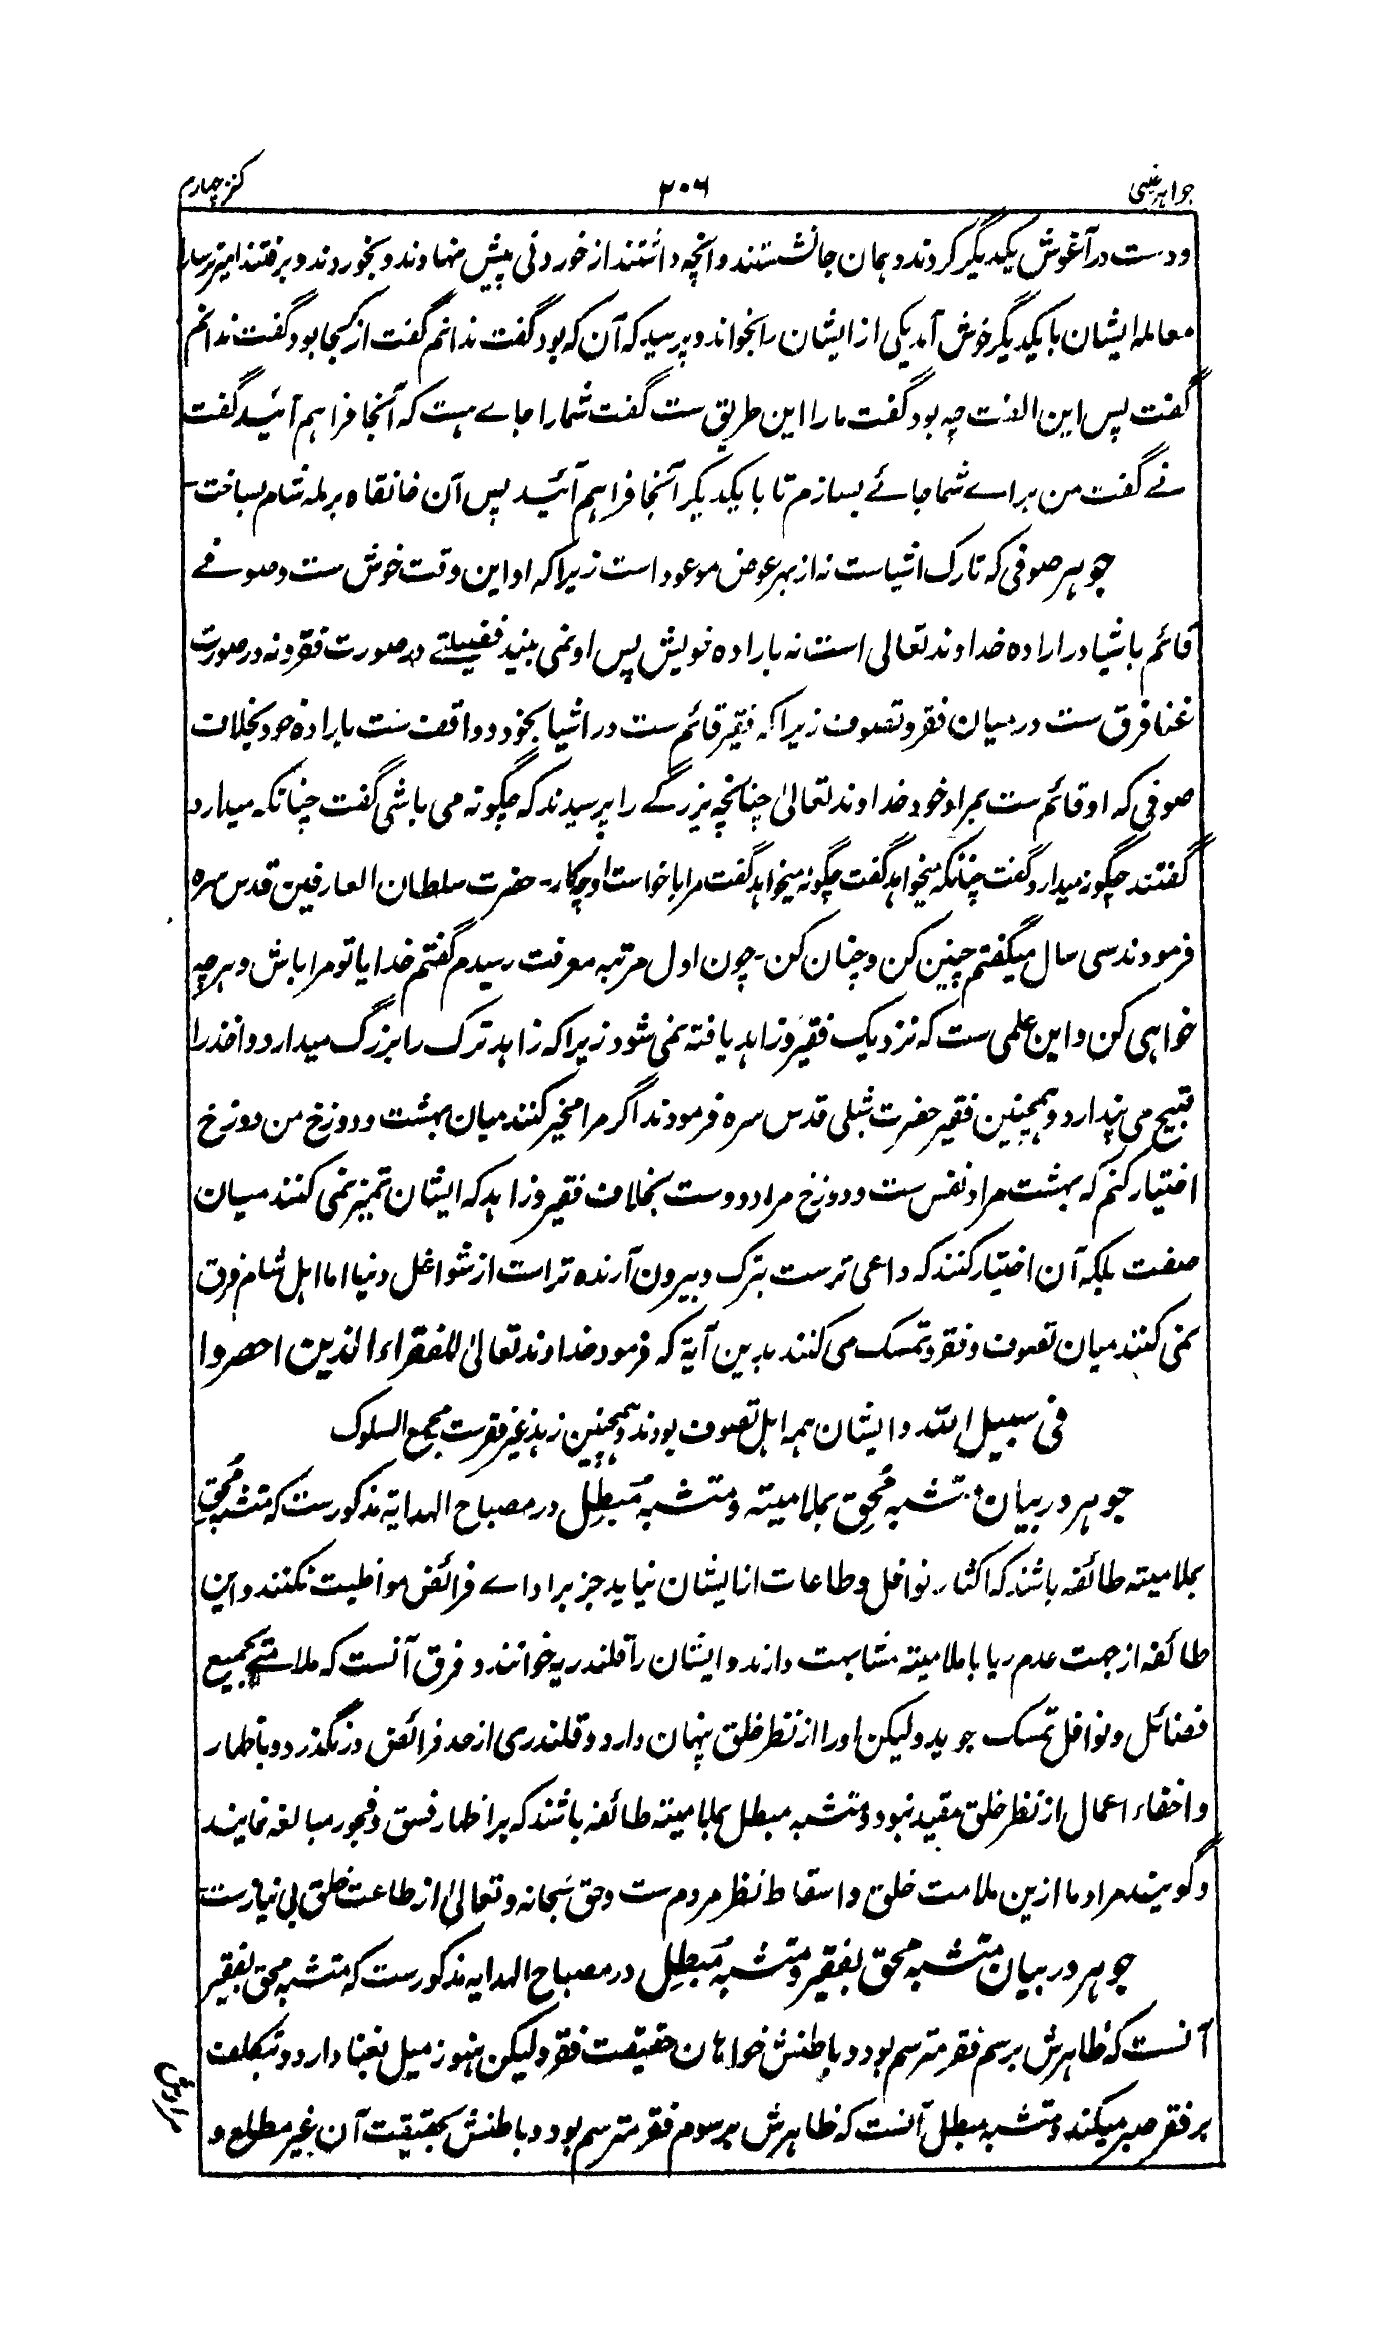 جواهر غیبی
۲۰۶
کنز چهارم
و دست در آغوش یکدیگر کردند و همان جا نشستند و آنچه داشتند از خوردنی پیش نهادند و بخوردند و برفتند امیر ترسا را
معامله ایشان با یکدیگر خوش آمد یکی از ایشان را بخواند و پرسید که آن که بود گفت ندانم گفت از کجا بود گفت ندانم
گفت پس این الفت چه بود گفت ما را این طریق ست گفت شما را جاے هست که آنجا فراهم آئید گفت
نے گفت من براے شما جائے بسازم تا با یکدیگر آنجا فراهم آئید پس آن خانقاه برمله شام بساخت
جوهر صوفی که تارک اشیاست نه از بهر عوض موعود است زیرا که او ابن وقت خوش ست و صوفے
قائم باشیا در اراده خداوند تعالی است نه باراده خویش پس او نمی بیند فضیلتے در صورت فقر و نه در صورت
غنا فرق ست درمیان فقر و تصوف زیرا که فقیر قائم ست در اشیا بخود و واقف ست باراده خود بخلاف
صوفی که او قائم ست بمراد خود خداوند تعالیٰ چنانچه بزرگے را پرسیدند که چگونه می باشی گفت چنانکه میدارد
گفتند چگونه میدارد گفت چنانکه میخواهد گفت چگونه میخواهد گفت مرا با خواست او چکار۔ حضرت سلطان العارفین قدس سره
فرمودند سی سال میگفتم چنین کن و چنان کن۔ چون اول مرتبه معرفت رسیدم گفتم خدایا تو مرا باش و هرچه
خواهی کن و این علمی ست که نزدیک فقیر و زاهد یافته نمی شود زیرا که زاهد ترک را بزرگ میدارد و اخذ را
قبیح می پندارد و همچنین فقیر حضرت شبلی قدس سره فرمودند اگر مرا مخیر کنند میان بهشت و دوزخ من دوزخ
اختیار کنم که بهشت مراد نفس ست و دوزخ مراد دوست بخلاف فقیر و زاهد که ایشان تمیز نمی کنند میان
صفت بلکه آن اختیار کنند که داعی ترست بترک و بیرون آرنده تر است از شواغل دنیا اما اهل شام فرق
نمی کنند میان تصوف و فقر و تمسک می کنند بدین آیة که فرمود خداوند تعالیٰ للفقراء الذین احصروا
فی سبیل الله و ایشان همه اهل تصوف بودند و همچنین زهد غیر فقرست مجمع السلوک
جوهر در بیان متشبه مُحِق بملامتیه و متشبه مُبطِل در مصباح الهدایة مذکورست که متشبه مُحق
بملامتیه طائفه باشند که اکثار نوافل و طاعات از ایشان نیاید جز براداے فرائض مواظبت نکنند و این
طائفه از جهت عدم ریا با ملامتیه مشابهت دارند و ایشان را قلندریه خوانند و فرق آنست که ملامتے بجمیع
فضائل و نوافل تمسک جوید ولیکن او را از نظر خلق پنهان دارد و قلندری از حد فرائض درنگذرد و باظهار
و اخفاء اعمال از نظر خلق مقید نبود و متشبه مبطل بملامتیه طائفه باشند که بر اظهار فسق و فجور مبالغه نمایند
و گویند مراد ما ازین ملامت خلق و اسقاط نظر مردم ست و حق سُبحانه و تعالیٰ از طاعت خلق بی نیازست
جوهر در بیان متشبه محق بفقیر و متشبه مُبطِل در مصباح الهدایه مذکورست که متشبه محق بفقیر
آنست که ظاهرش برسم فقر مترسم بود و باطنش خواهان حقیقت فقر ولیکن هنوز میل بغنا دارد و بتکلف
بر فقر صبر میکند و متشبه مبطل آنست که ظاهرش برسوم فقر مترسم بود و باطنش بحقیقت آن غیر مطلع و